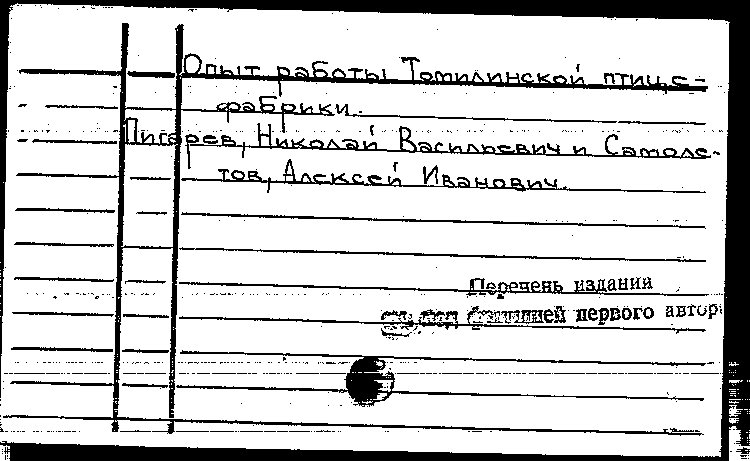 Опыт работы Томилинской птице-
фабрики.
Пигарев, Николай Васильевич и Самоле-
тов, Алексей Иванович.
Перечень изданий
см. под фамилией первого автора